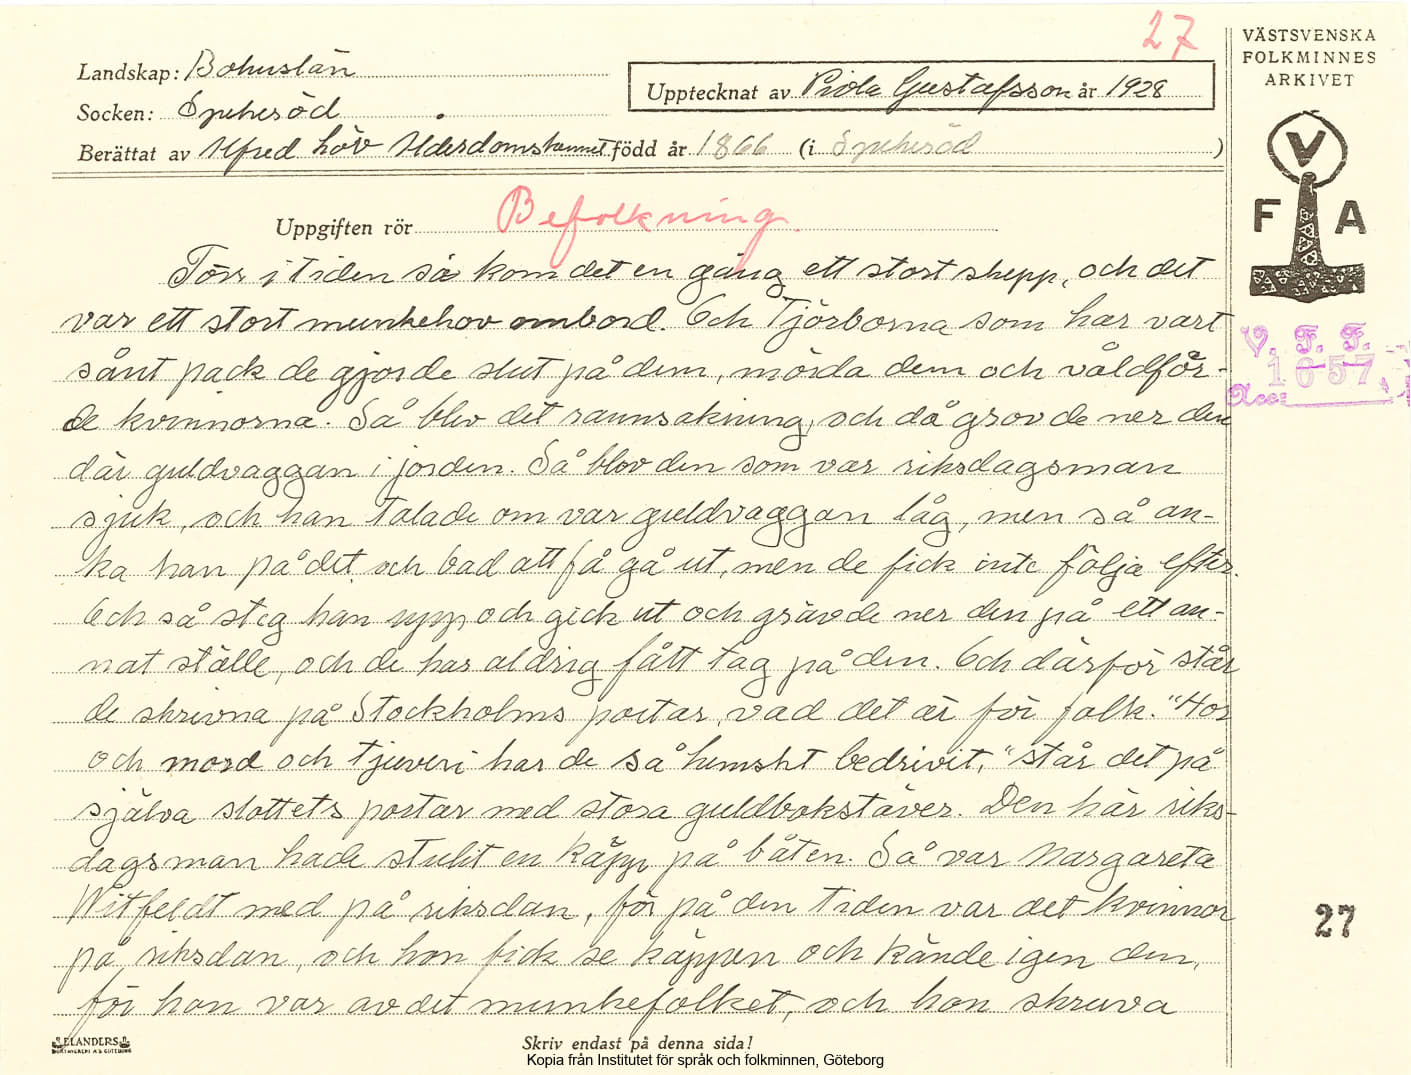 27
VÄSTSVENSKA
FOLKMINNES
ARKIVET
V
F A
V. F. F.
1657
Acc:
Landskap: Bohuslän
Upptecknat av Viola Gustafsson år 1928
Socken: Spekeröd
Berättat av Alfred Löv Ålderdomshemmet född år 1866 (i Spekeröd )
Uppgiften rör Befolkning.
Förr i tiden så kom det en gång ett stort skepp, och det
var ett stort munkehov ombord. Och Tjörborna som har vart
sånt pack de gjorde slut på dem, mörda dem och våldför-
de kvinnorna. Så blev det rannsakning, och då grov de ner den
där guldvaggan i jorden. Så blev den som var riksdagsman
sjuk, och han talade om var guldvaggan låg, men så än-
ka han på det och bad att få gå ut, men de fick inte följa efter.
Och så steg han upp och gick ut och grävde ner den på ett an-
nat ställe, och de har aldrig fått tag på den. Och därför står
de skrivna på Stockholms portar, vad det är för folk. "Hor
och mord och tjuveri har de så hemskt bedrivit," står det på
själva slottets portar med stora guldbokstäver. Den här riks-
dagsman hade stulit en käpp på båten. Så var Margareta
Witfeldt med på riksdan, för på den tiden var det kvinnor
på riksdan, och hon fick se käppen och kände igen den,
för hon var av det munkefolket, och hon skruva
27
ELANDERS
Skriv endast på denna sida!
Kopia från Institutet för språk och folkminnen, Göteborg